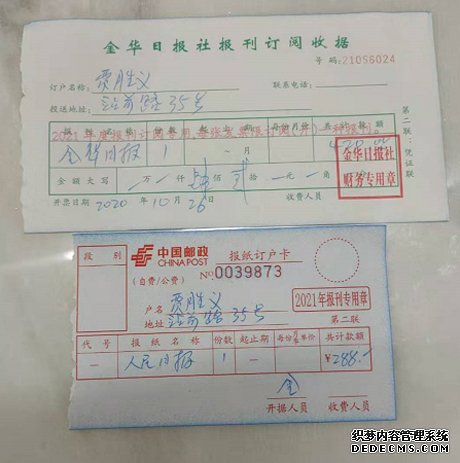 金华日报社报刊订阅收据
号码:21056024
订户名称: 贾胜义 联系电话:
投送地址: 站前路35号
2021年度报刊订费专用,每张发票限订阅(开)一种报刊。
报刊名称 份数
金华日报 1 一 月 420.00
金额大写 万 仟 肆 佰 贰 拾 元 角
开票日期 2020 年 10 月 26 日 收费人员
金华日报社
财务专用章
第二联:凭证联
段别
中国邮政
CHINA POST
报纸订户卡
(自费/公费) №0039873
户名 贾胜义
地址 站前路35号
2021年报刊专用章
第二联
代号 报纸名称 份数 起止期 每份月单价 共计款额
一 人民日报 1 一 ¥288.-
金
开据人员 收费人员
织梦内容管理系统
DEDECMS.COM